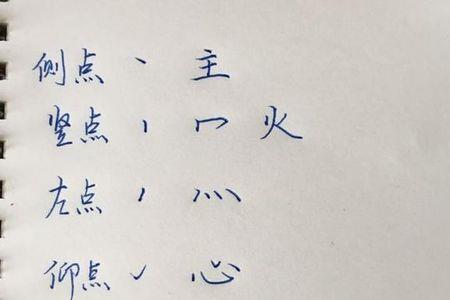 侧点 丶 主
竖点 丨 冖 火
左点 丿 灬
仰点 ㇀ 心